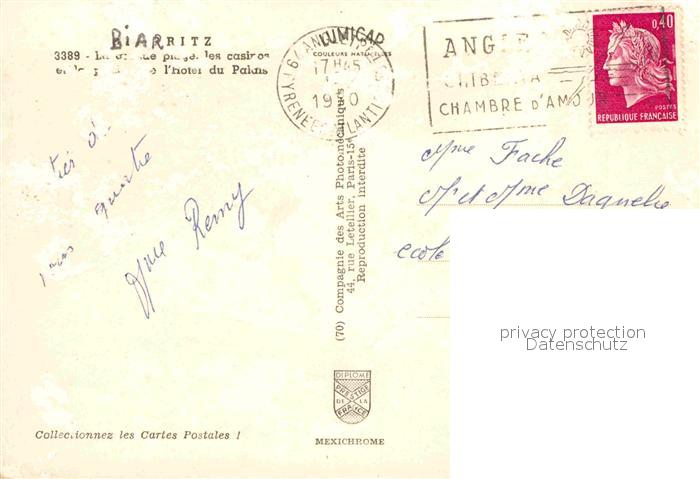 BIARRITZ
3389 - La grande plage, les casinos
et la l'Hôtel du Palais
LUMICAP
COULEURS NATURELLES
17H45
19 0
PYRENEES ATLANTI
ANGLE
CHAMBRE D'AMOUR
0,40
POSTES
REPUBLIQUE FRANÇAISE
Mme Fache
M et Mme Dagnelie
école
quatre
Mme Remy
(70) Compagnie des Arts Photomécaniques
44, rue Letellier, Paris-15e
Reproduction interdite
DIPLOME
PRESTIGE
DE LA
FRANCE
MEXICHROME
Collectionnez les Cartes Postales !
privacy protection
Datenschutz